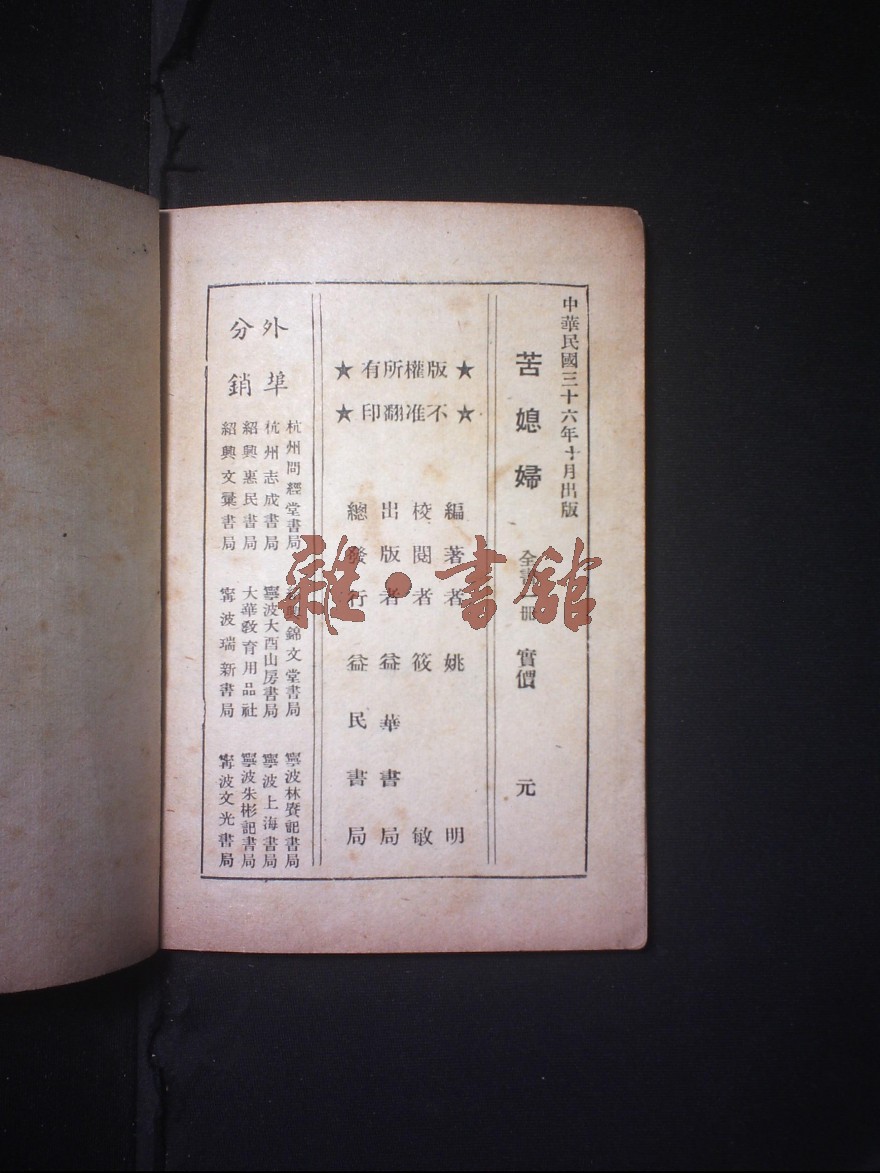 中華民國三十六年十月出版
苦媳婦 全書一冊 實價 元
★版權所有★
★不准翻印★
編著者 姚明
校閱者 筱敏
出版者 益華書局
總發行 益民書局
外埠
分銷
杭州問經堂書局 紹興錦文堂書局 寧波林賡記書局
杭州志成書局 寧波大酉山房書局 寧波上海書局
紹興惠民書局 大華教育用品社 寧波朱彬記書局
紹興文彙書局 寧波瑞新書局 寧波文光書局
雜·書館